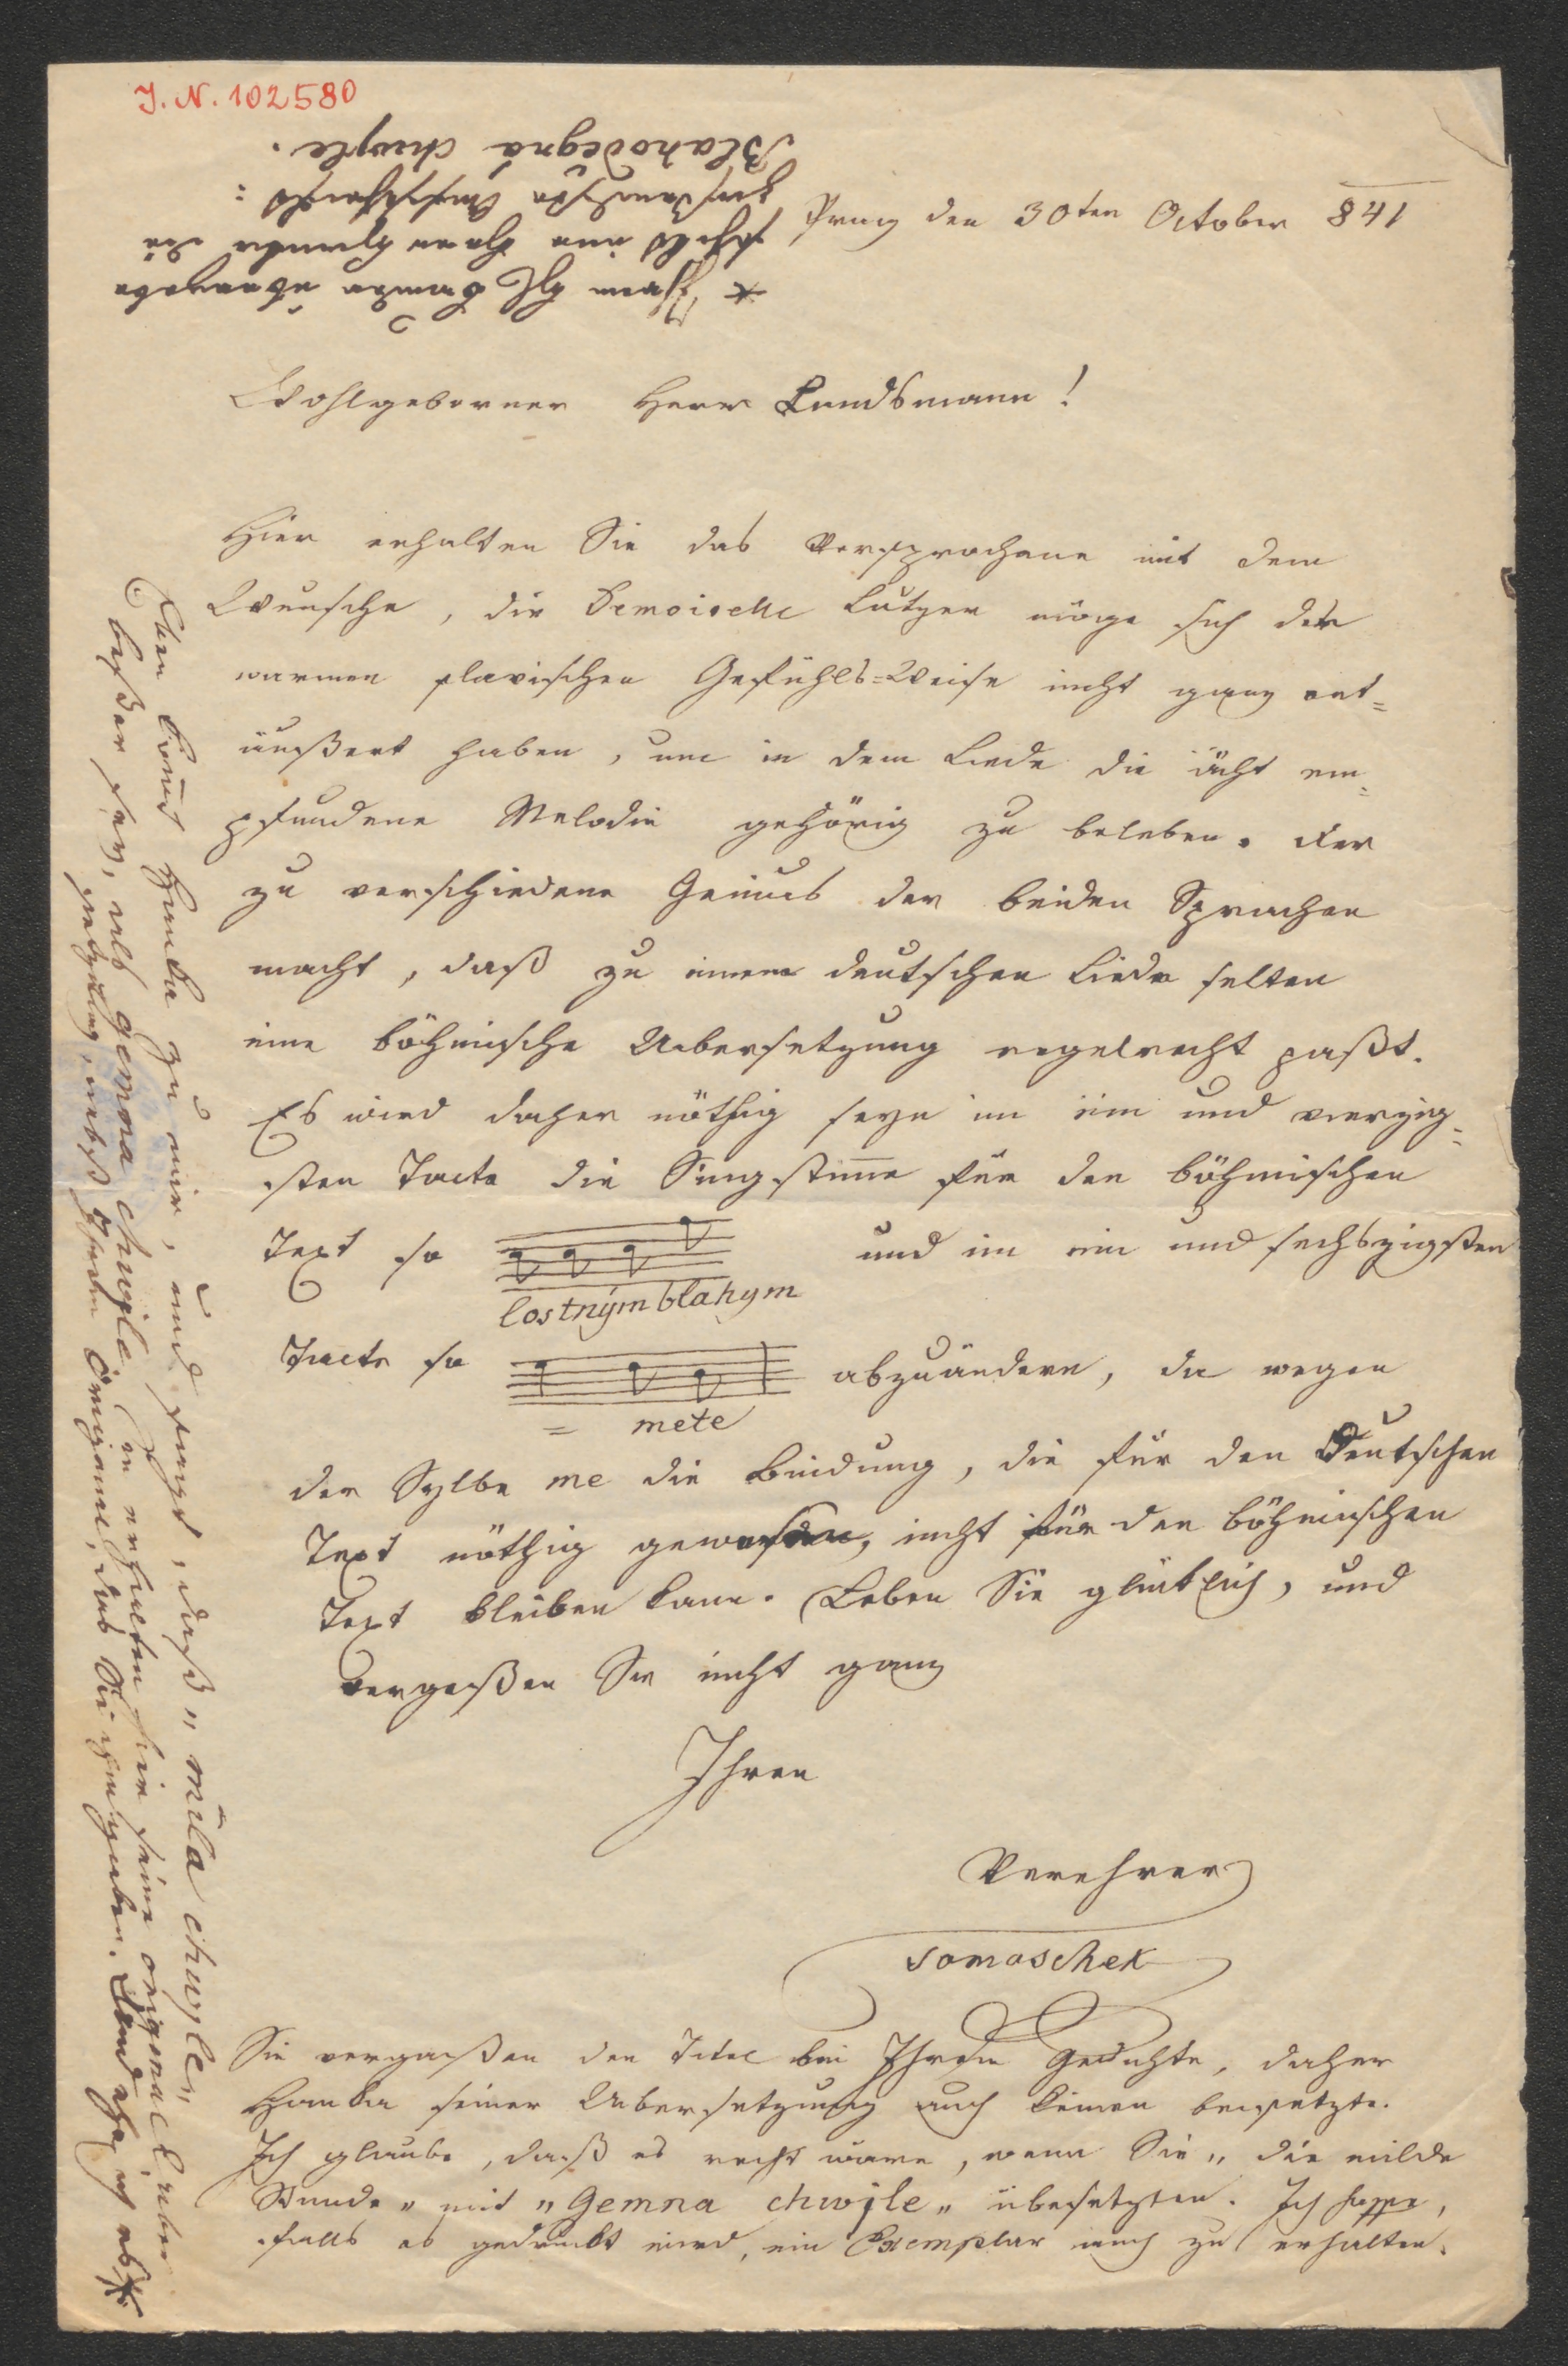 J. N. 102580
Prag den 30ten October 841
Wohlgeborner Herr Landsmann!
Hier erhalten Sie das Versprochene mit dem
Wunsche, die Demoiselle Lutzer möge sich der
warmen slavischen Gefühls=Weise nicht ganz ent=
äußert haben, um in dem Liede die ächt em=
pfundene Melodie gehörig zu beleben. Der
zu verschiedene Genius der beiden Sprachen
macht, daß zu einem deutschen Liede selten
eine böhmische Uebersetzung regelrecht paßt.
Es wird daher nöthig seyn im ein und vierzig=
sten Tacte die Singstimme für den böhmischen
Text so
lostným blahym
und im ein und sechszigsten
Tacte so
= mete
abzuändern, da wegen
der Sylbe me die Bindung, die für den Deutschen
Text nöthig gewesen, nicht für den böhmischen
Text bleiben kann. Leben Sie glücklich, und
vergeßen Sie nicht ganz
Ihren
Verehrer
Tomaschek
Sie vergaßen den Titel bei Ihrem Gedichte, daher
Hanka seiner Uebersetzung auch keinen beysetzte.
Ich glaube, daß es recht wäre, wenn Sie „die milde
Stunde" mit „Gemna chwjle" übersetzten. Ich hoffe,
falls es gedruckt wird, ein Exemplar auch zu erhalten.
Eben kömt Hanka zu mir, und sagt, daß „mila chwjle"
beßer sey, als gemna chwjle. Sie erhalten hier seine original Ueber
setzung, nebst Ihrem Originale, das Sie ihm gaben. *
* Ihrem
Herr Hanka die
:
Blahodegná chwjle.